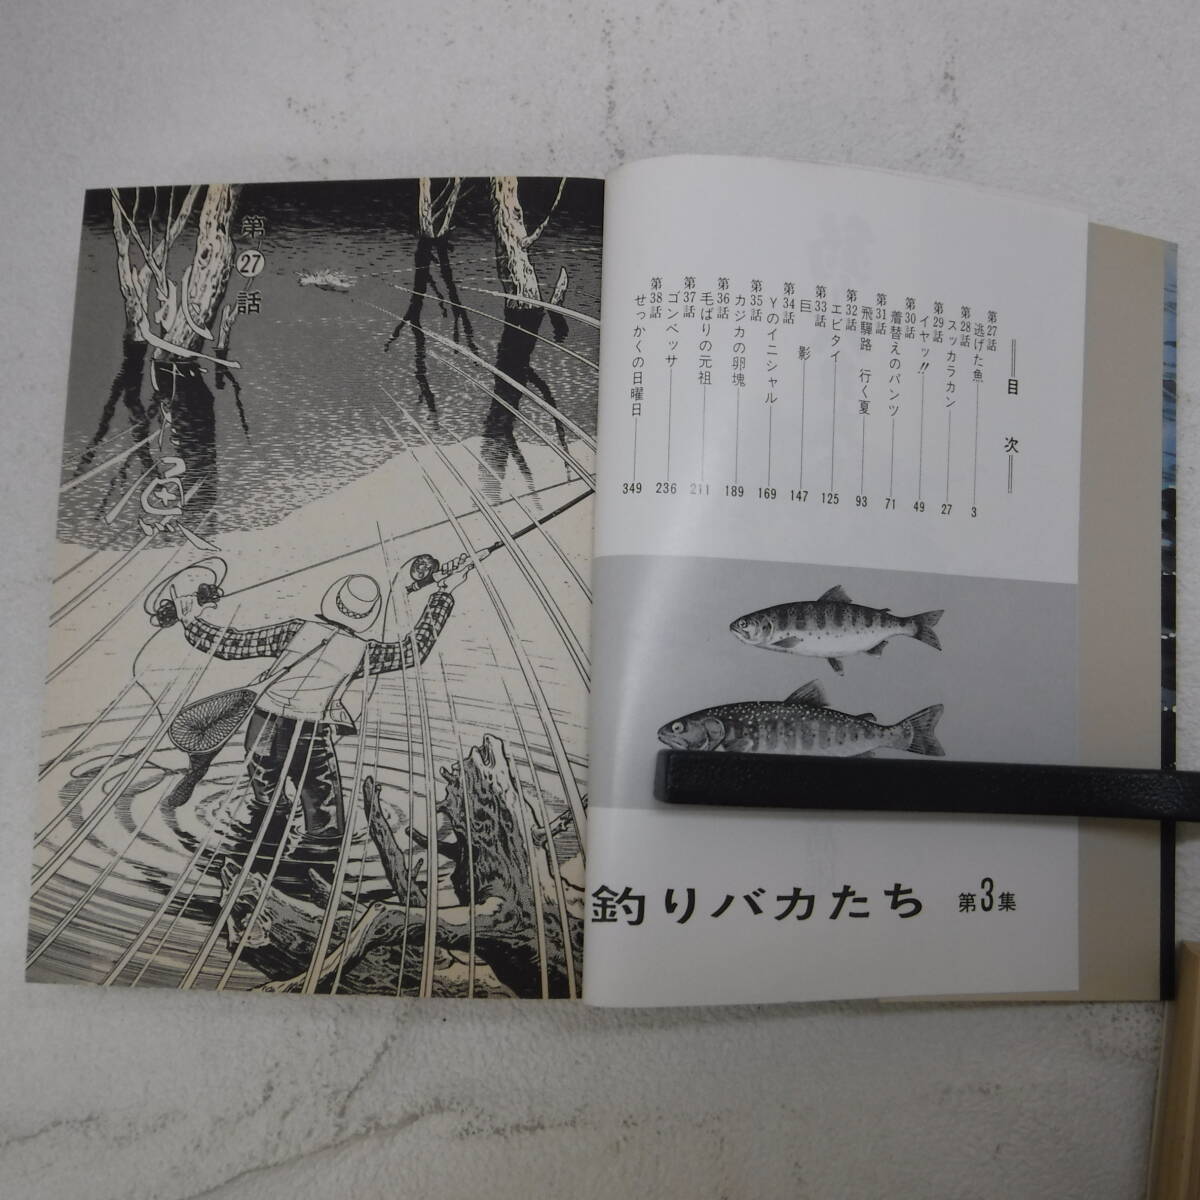 目 次
第27話 逃げた魚 3
第28話 スッカラカン 27
第29話 イヤッ!! 49
第30話 着替えのパンツ 71
第31話 飛騨路 行く夏 93
第32話 エビタイ 125
第33話 巨 影 147
第34話 Yのイニシャル 169
第35話 カジカの卵塊 189
第36話 毛ばりの元祖 211
第37話 ゴンベッサ 236
第38話 せっかくの日曜日 349
釣りバカたち 第3集
第27話
逃げた魚